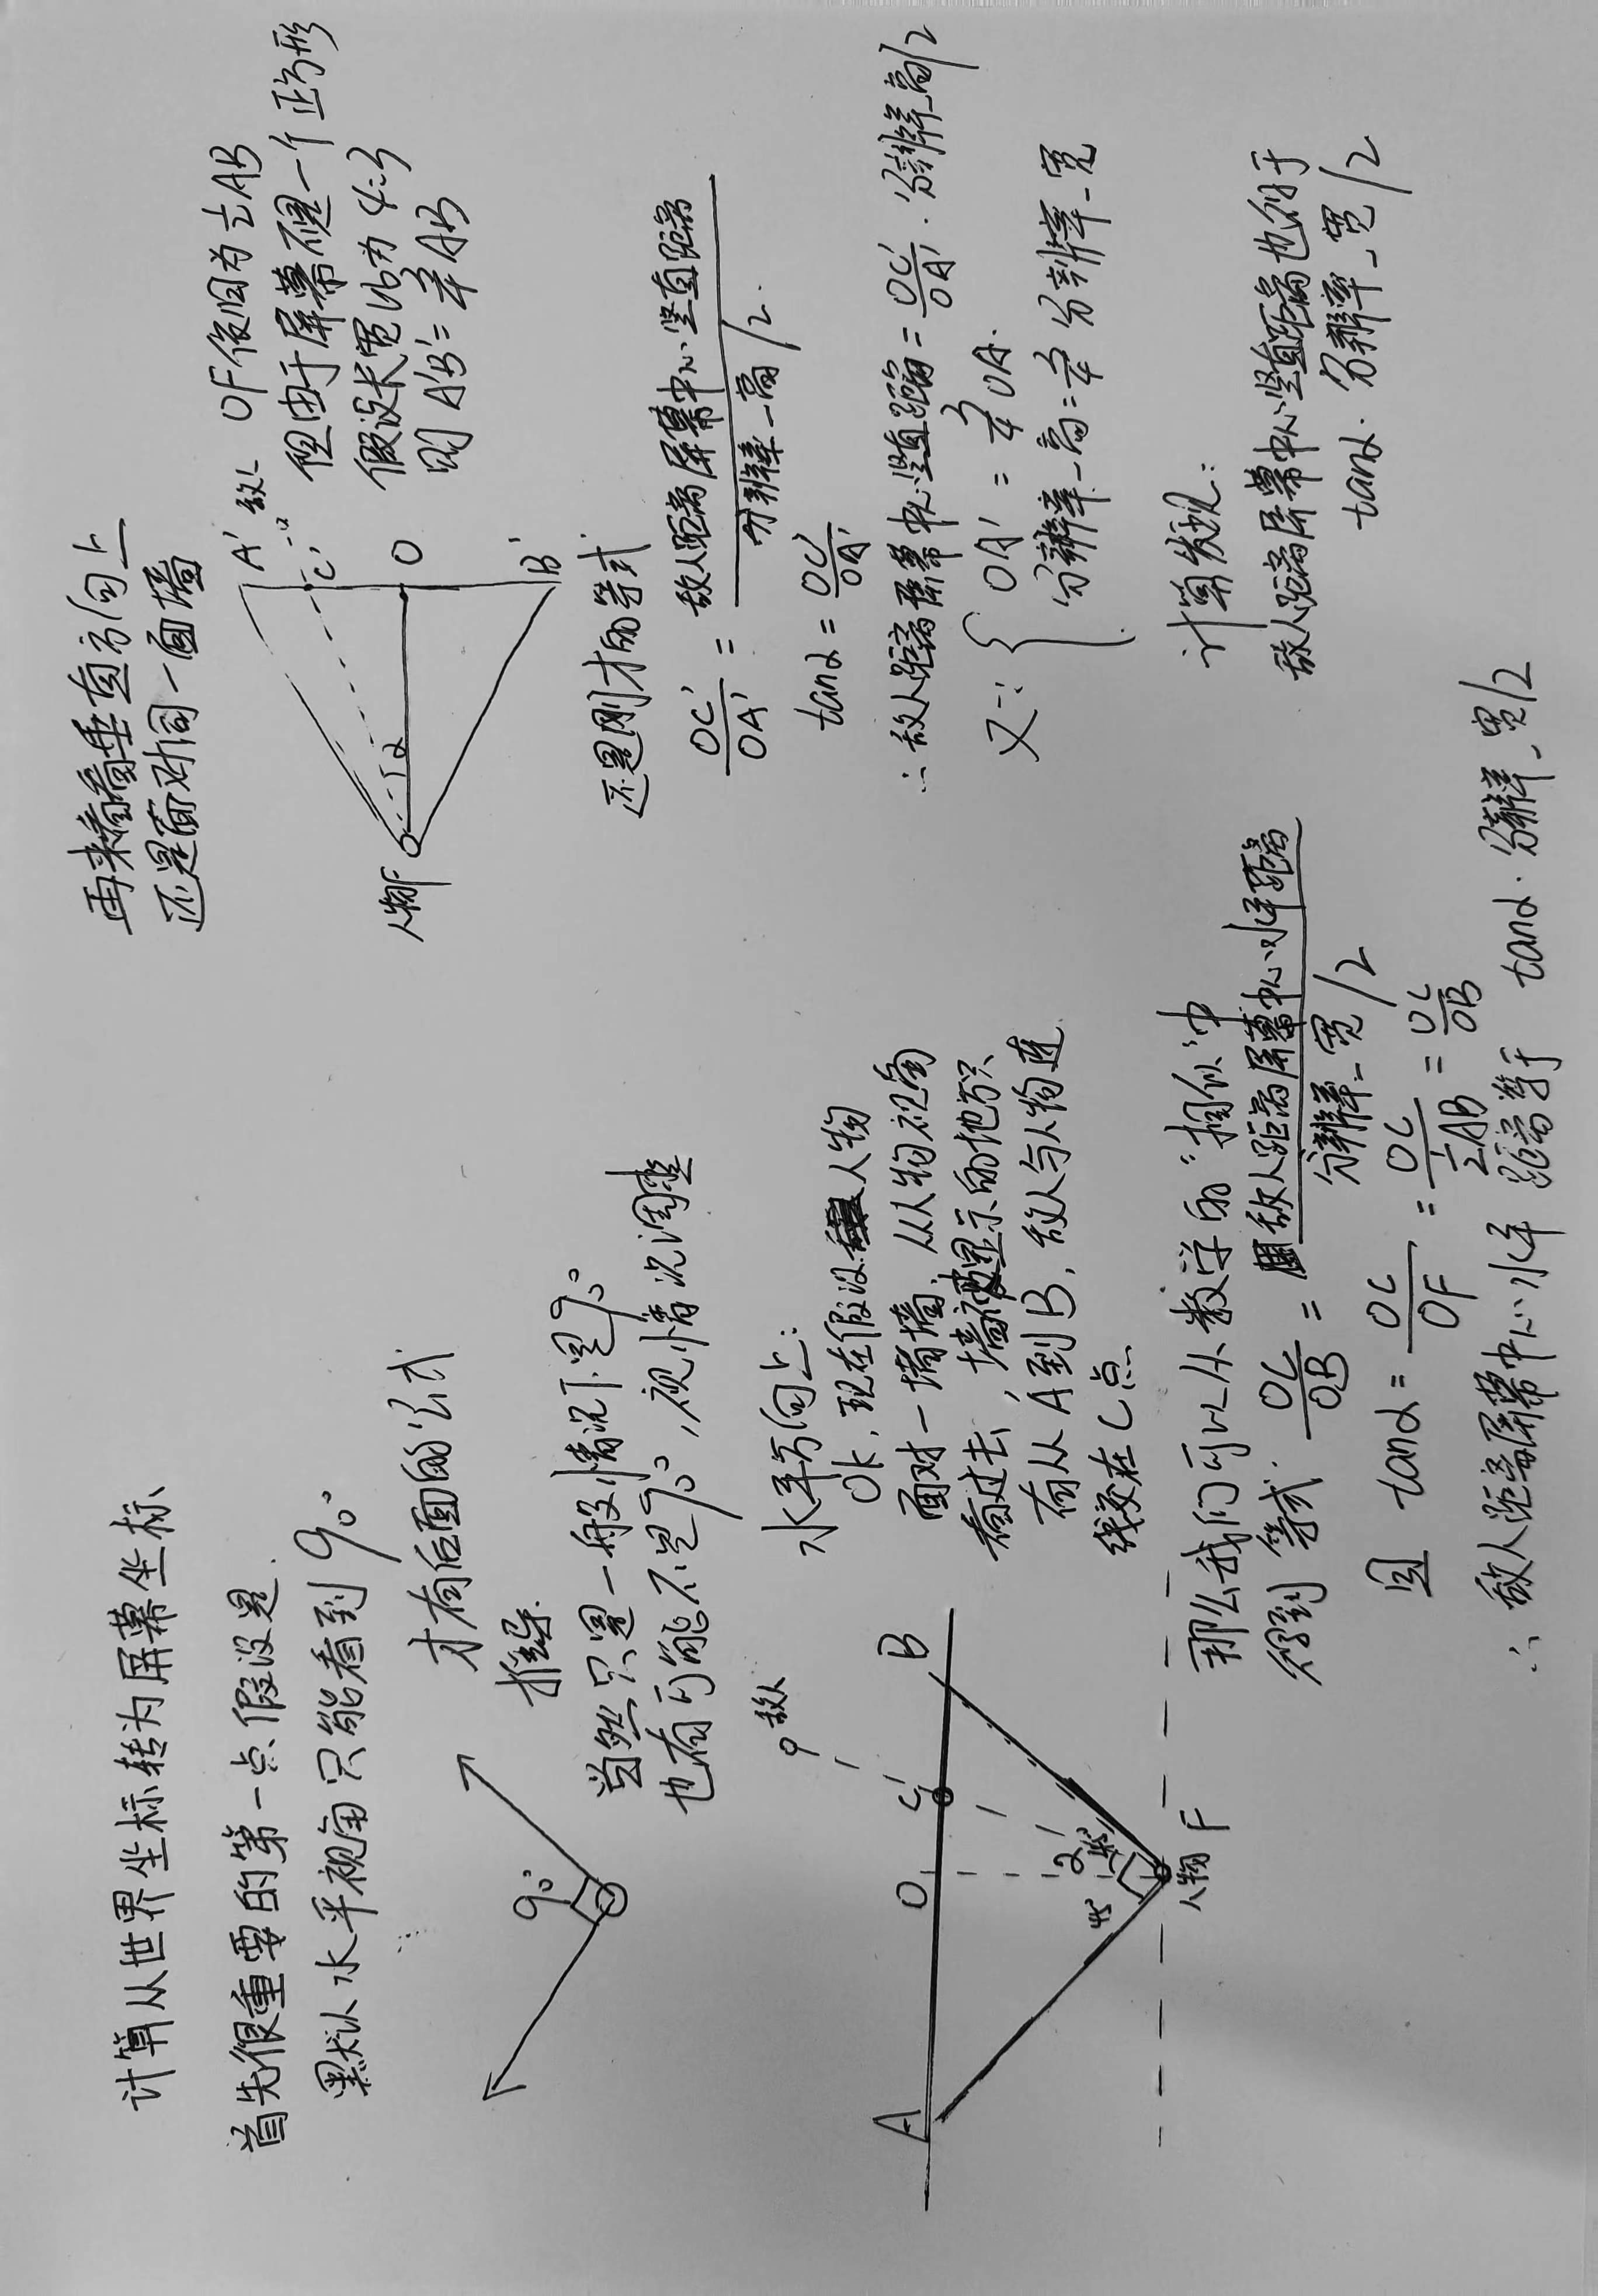 计算从世界坐标转为屏幕坐标
首先很重要的第一点假设是
默认水平视角只能看到90°
才有后面的公式
推导.
90°
当然只是一般情况下是90°
也有可能不是90°,视情况调整
水平方向上:
OK,现在假设人物
面对一堵墙,从人物视角
看过去,墙被显示的地方只
有从A到B,敌人与人物连
线交在C点
敌人
A
O
C
B
45°
α
45°
人物
F
那么我们可以从数学的"相似"中
得到等式. OC/OB = 敌人距离屏幕中心水平距离 / 分辨率_宽/2
因 tanα = OC/OF = OC/½AB = OC/OB
∴ 敌人距离屏幕中心水平距离等于 tanα·分辨率_宽/2
再来看看垂直方向上
还是面对同一面墙
A'
敌人
C'
O
B'
α
人物F
OF依旧为½AB
但由于屏幕不是一个正方形
假设长宽比为4:3
则A'B'=¾AB
还是刚才的等式
OC'/OA' = 敌人距离屏幕中心竖直距离 / 分辨率_高/2.
tanα = OC'/OA'
∴ 敌人距离屏幕中心竖直距离 = OC'/OA'·分辨率_高/2
又∵ { OA' = ¾OA.
分辨率_高=¾分辨率_宽
计算发现:
敌人距离屏幕中心竖直距离也等于
tanα·分辨率_宽/2